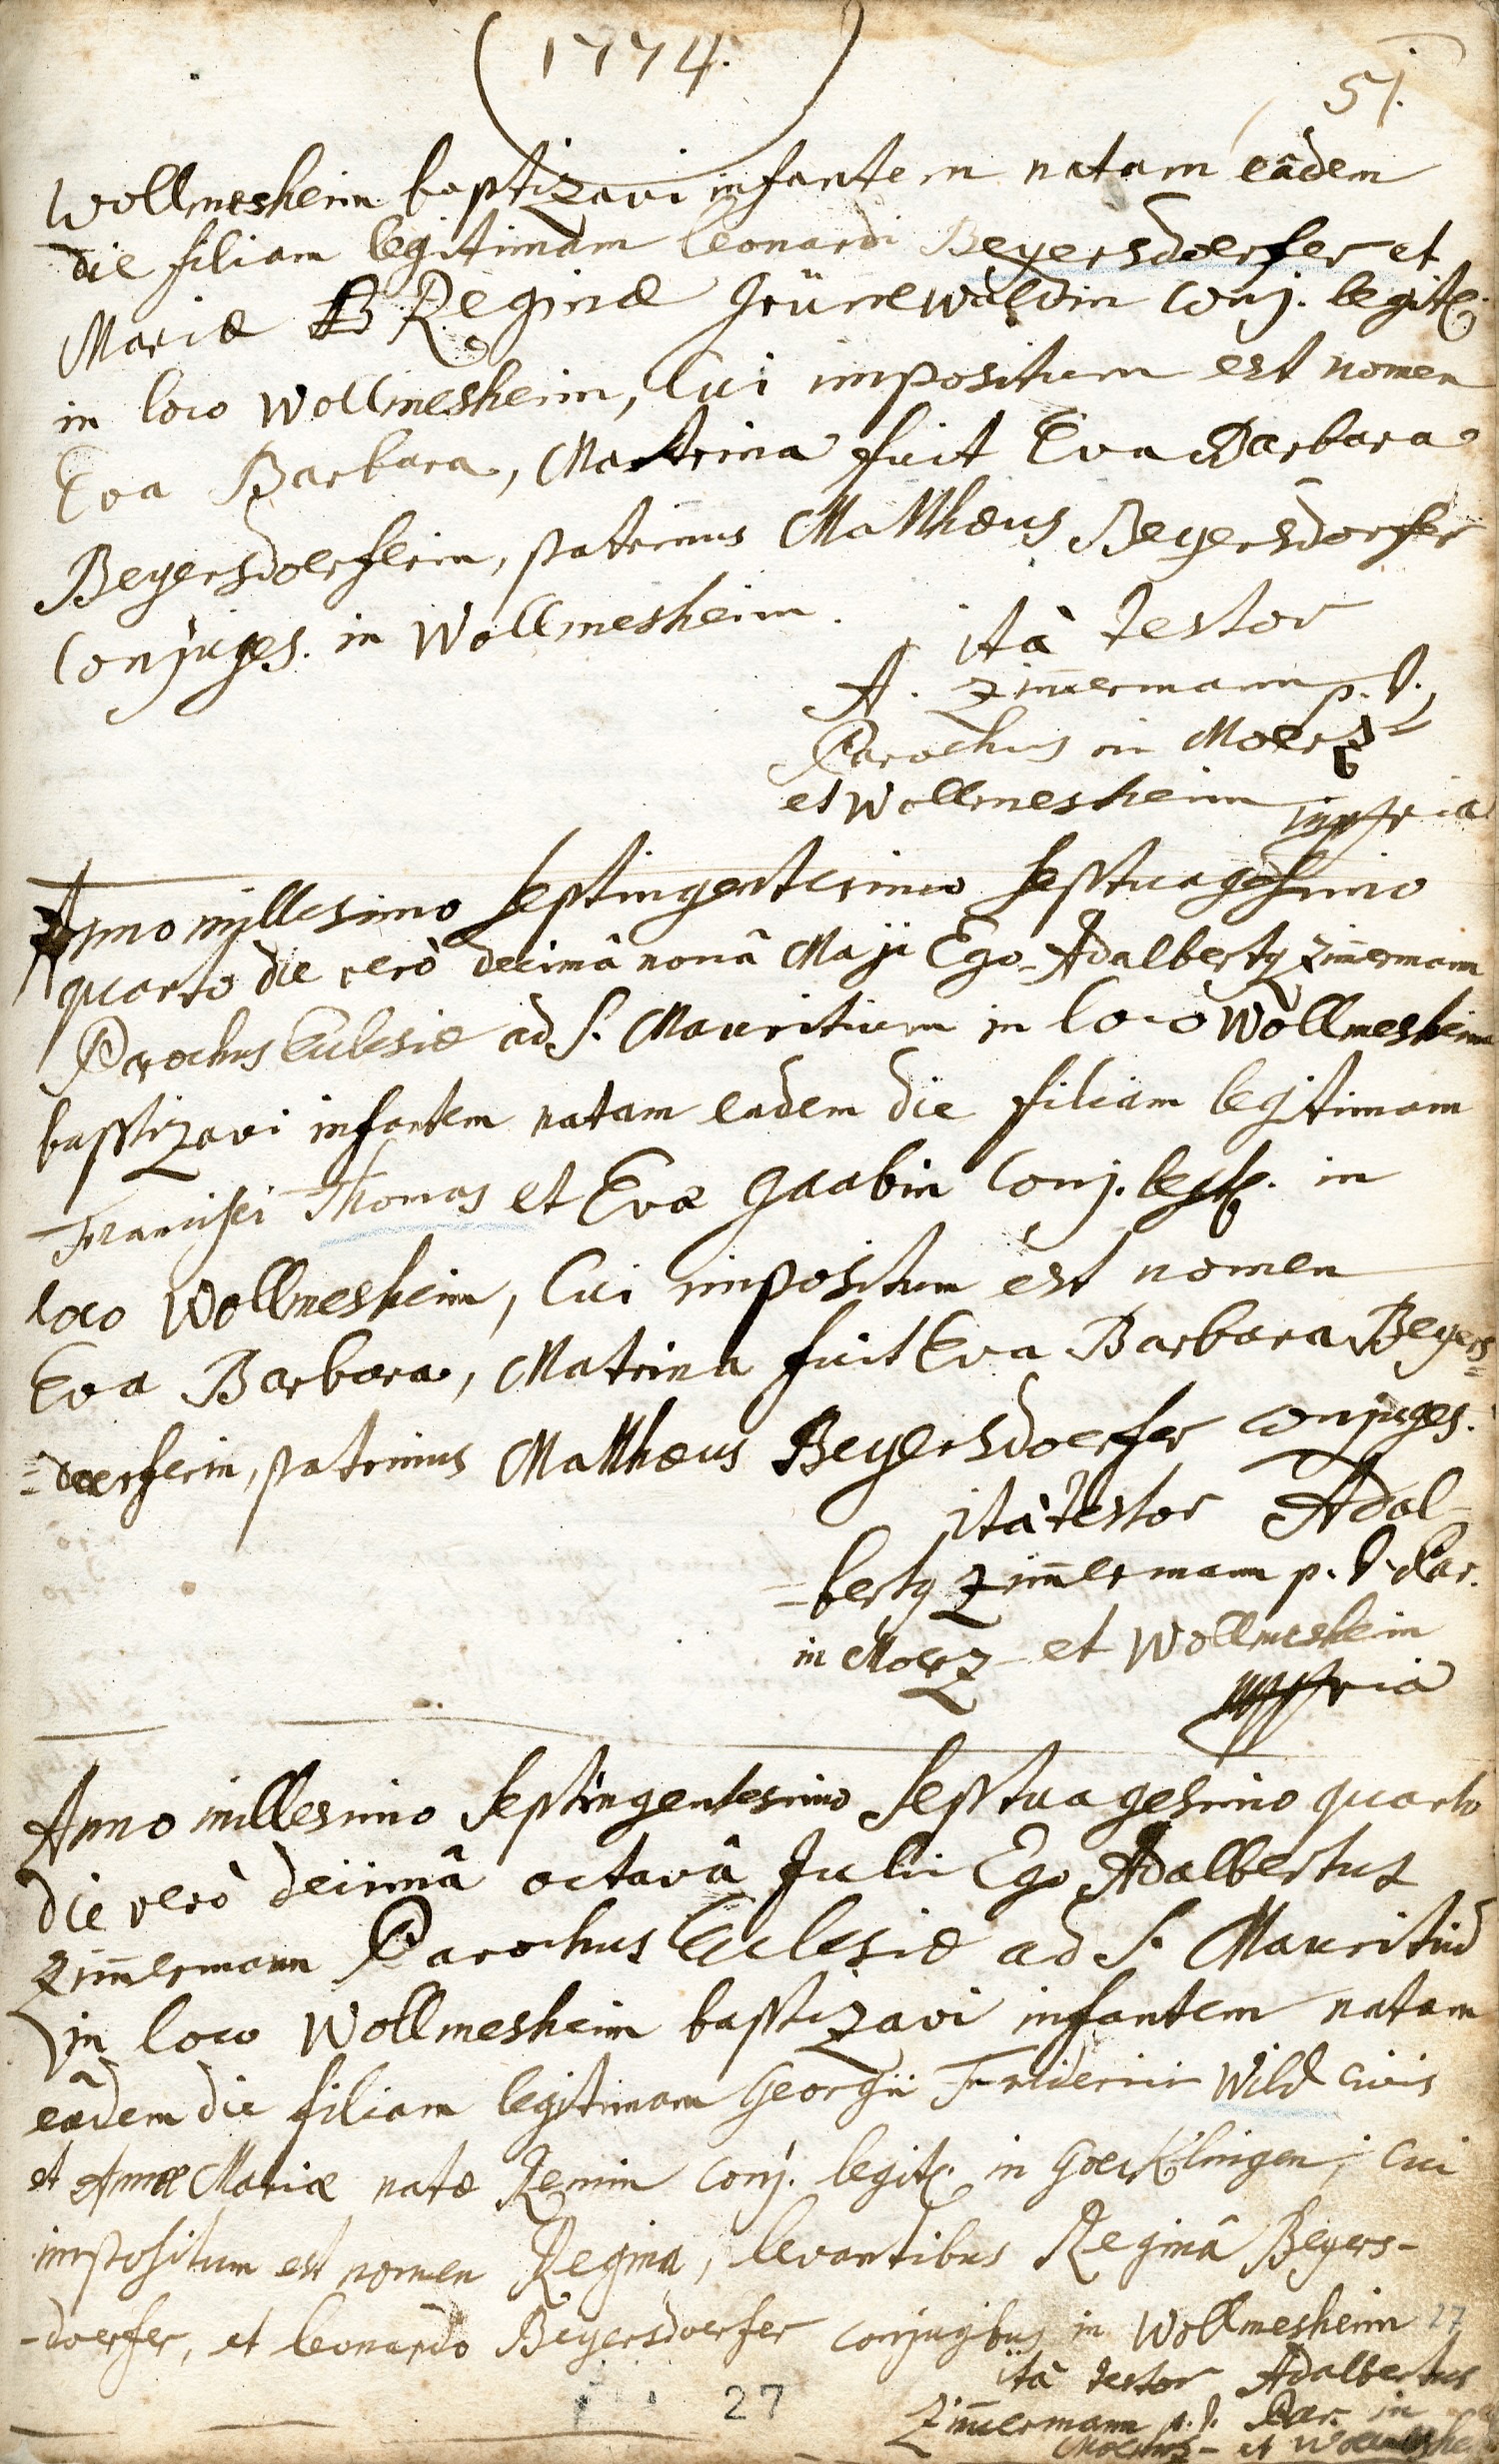 (1774.)
51.
Wollmesheim baptizavi infantem natam eâdem
die filiam legitimam Leonardi Beyersdoerfer et
Mariæ B Reginæ Grünewaldin conj. legit.
in loco Wollmesheim, Cui impositum est nomen
Eva Barbara, Matrina fuit Eva Barbara
Beyersdoerferin, patrinus Matthæus Beyersdorfer
Conjuges. in Wollmesheim.
ità testor
A. Zim̄ermann p. t.
Parochus in Moerz
et Wollmesheim mppria
Anno millesimo septingentesimo septuagesimo
quarto die verò decimâ nonâ Maji Ego Adalbertq Zim̄ermann
Parochus Ecclesiæ ad S. Mauritium in loco Wollmesheim
baptizavi infantem natam eadem die filiam legitimam
Francisci Thomas et Evæ Gaabin Conj. legit. in
loco Wollmesheim, Cui impositum est nomen
Eva Barbara, Matrina fuit Eva Barbara Beyers=
=doerferin, patrinus Matthæus Beyersdoerfer conjuges.
ità testor Adal-
=bertq Zim̄ermann p. t. Par.
in Moerz et Wollmesheim
mppria
Anno millesimo septingentesimo septuagesimo quarto
die verò decimâ octavâ Julii Ego Adalbertus
Zim̄ermann Parochus Ecclesiæ ad S. Mauritiū
in loco Wollmesheim baptizavi infantem natam
eâdem die filiam legitimam Georgii Friderici Wild civis
et Annæ Mariæ natæ conj. legit. in Goerklingen, cui
impositum est nomen Regina, levantibus Reginâ Beyers-
-doerfer, et Leonardo Beyersdoerfer conjugibus in Wollmesheim 27
ità testor Adalbertus
27
Zim̄ermann p. t. Par. in
et Wollmesheim